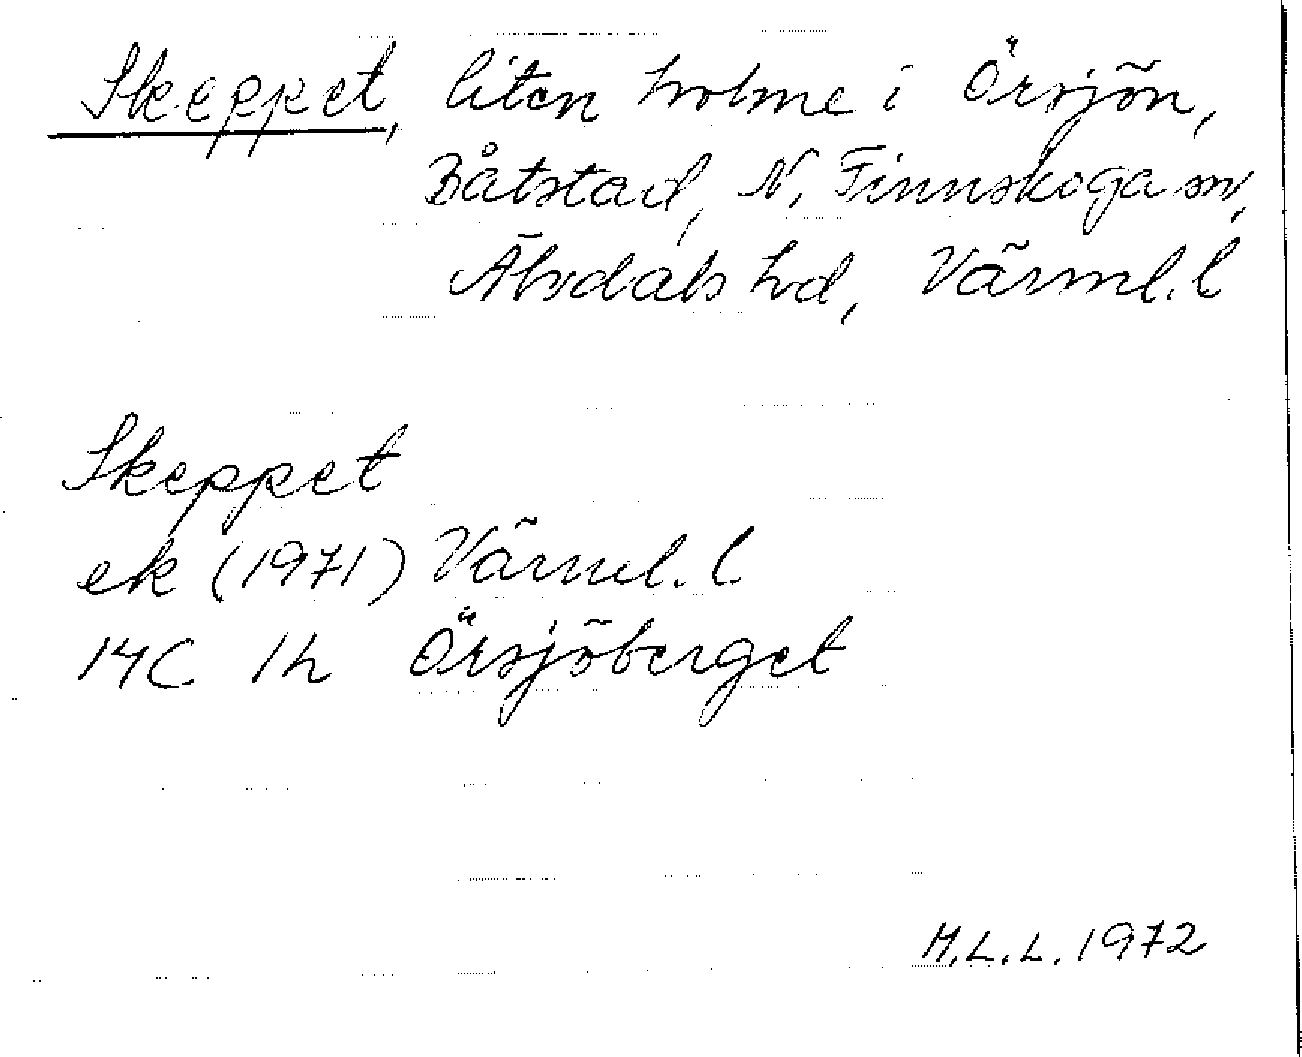 Skeppet, liten holme i Örsjön,
Båtstad, N. Finnskoga sn,
Älvdals hd, Värml. l
Skeppet
ek (1971) Värml. l.
14C 1h Örsjöberget
M.L.L. 1972